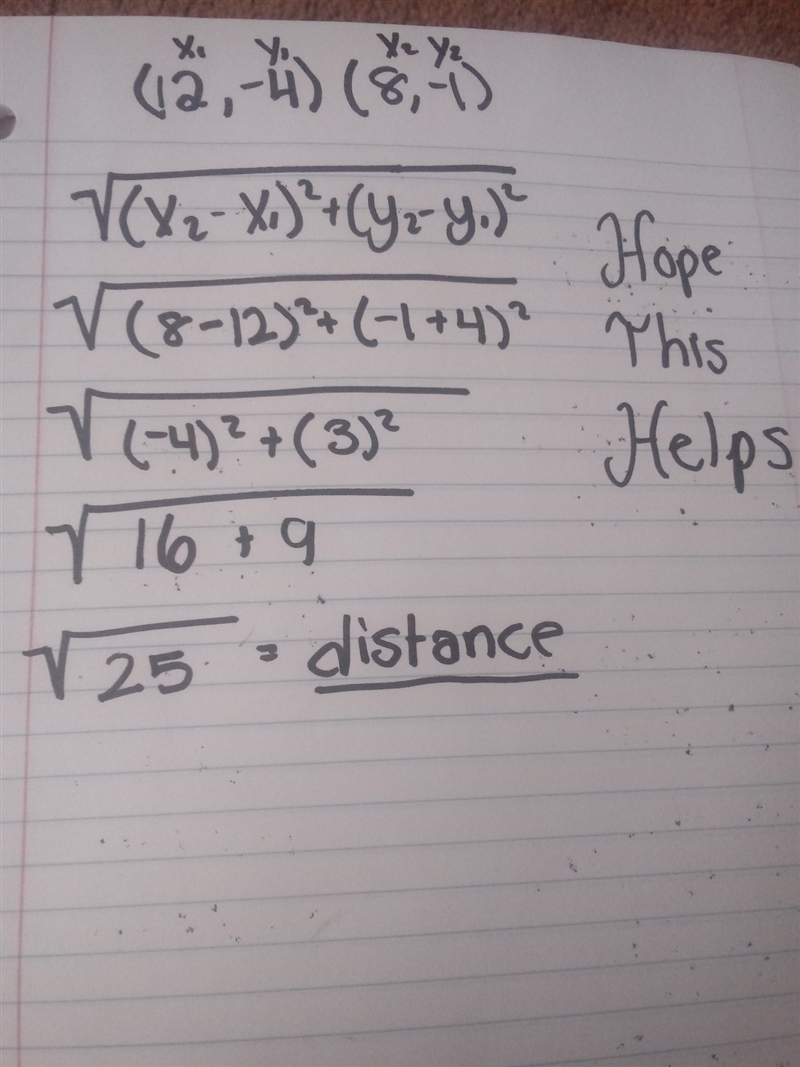 x₁ y₁ x₂ y₂
(12, -4) (8, -1)
√(x₂ - x₁)² + (y₂ - y₁)²
√(8 - 12)² + (-1 + 4)²
√(-4)² + (3)²
√16 + 9
√25 = distance
Hope
This
Helps